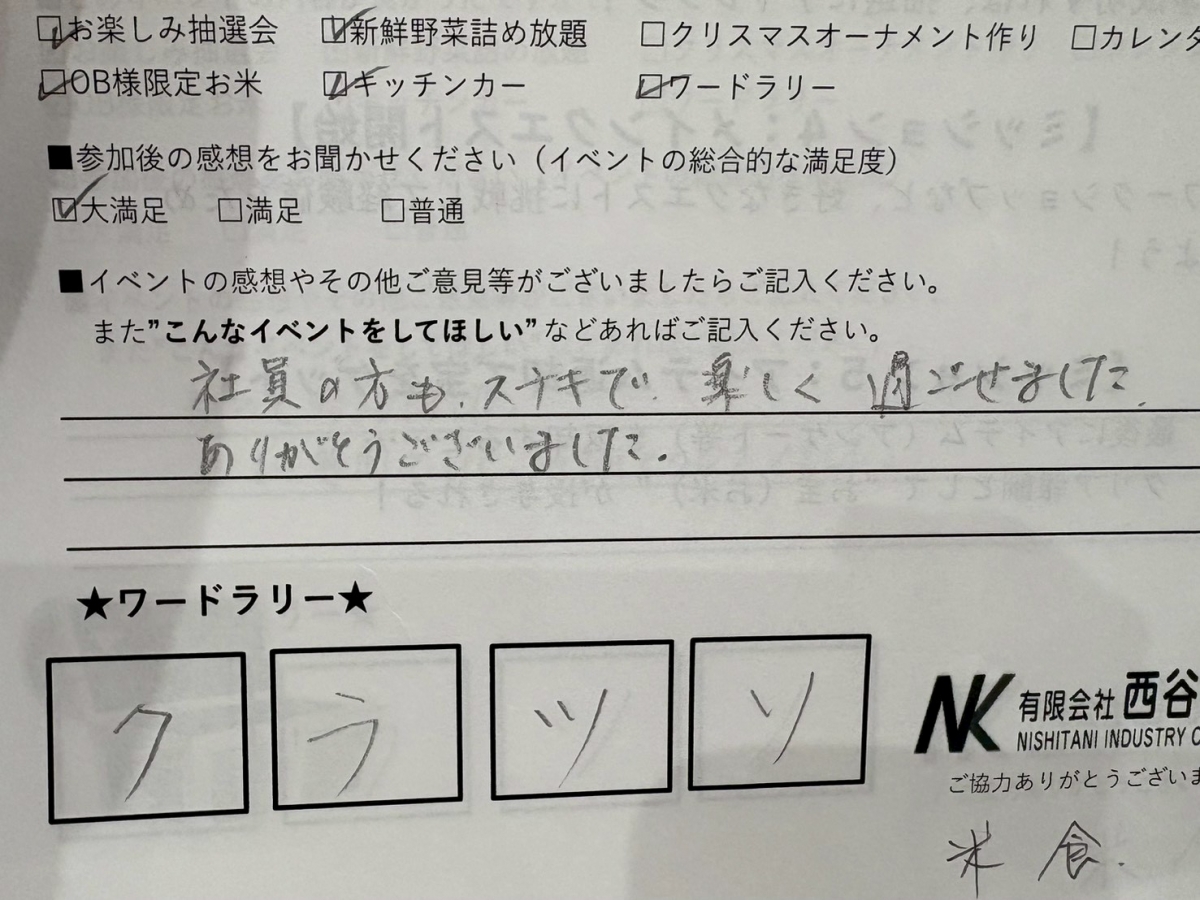 ☑お楽しみ抽選会 ☑新鮮野菜詰め放題 □クリスマスオーナメント作り □カレンダ
☑OB様限定お米 ☑キッチンカー ☑ワードラリー
■参加後の感想をお聞かせください（イベントの総合的な満足度）
☑大満足 □満足 □普通
■イベントの感想やその他ご意見等がございましたらご記入ください。
また”こんなイベントをしてほしい”などあればご記入ください。
社員の方も、ステキで、楽しく過ごせました。
ありがとうございました。
★ワードラリー★
ク ラ ツ ソ
NK 有限会社 西谷
NISHITANI INDUSTRY C
ご協力ありがとうございま
米 食.